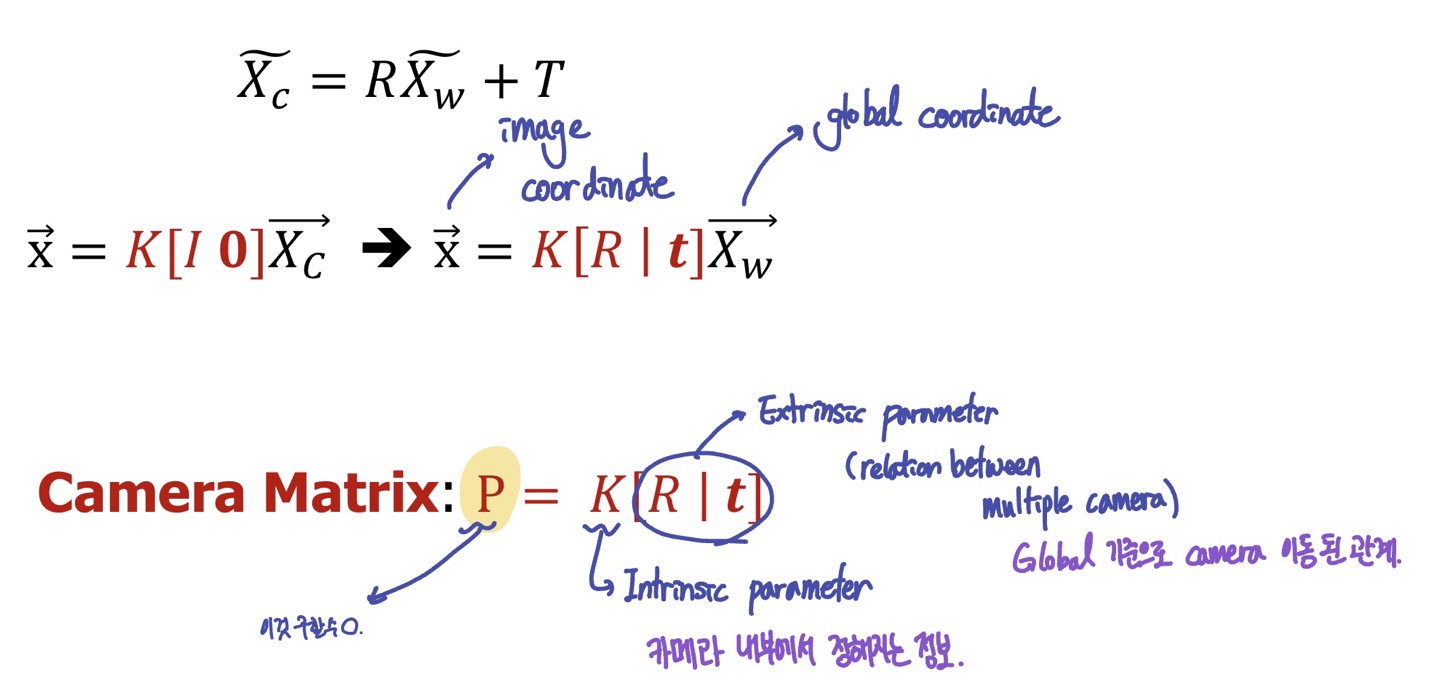 X̃_c = RX̃_w + T
image
coordinate
global coordinate
x⃗ = K[I 0]X⃗_C ➔ x⃗ = K[R | t]X⃗_w
Extrinsic parameter
(relation between
multiple camera)
Global 기준으로 camera 이동된 관계.
Camera Matrix: P = K[R | t]
Intrinsic parameter
카메라 내부에서 정해지는 정보.
이것 구할수 O.